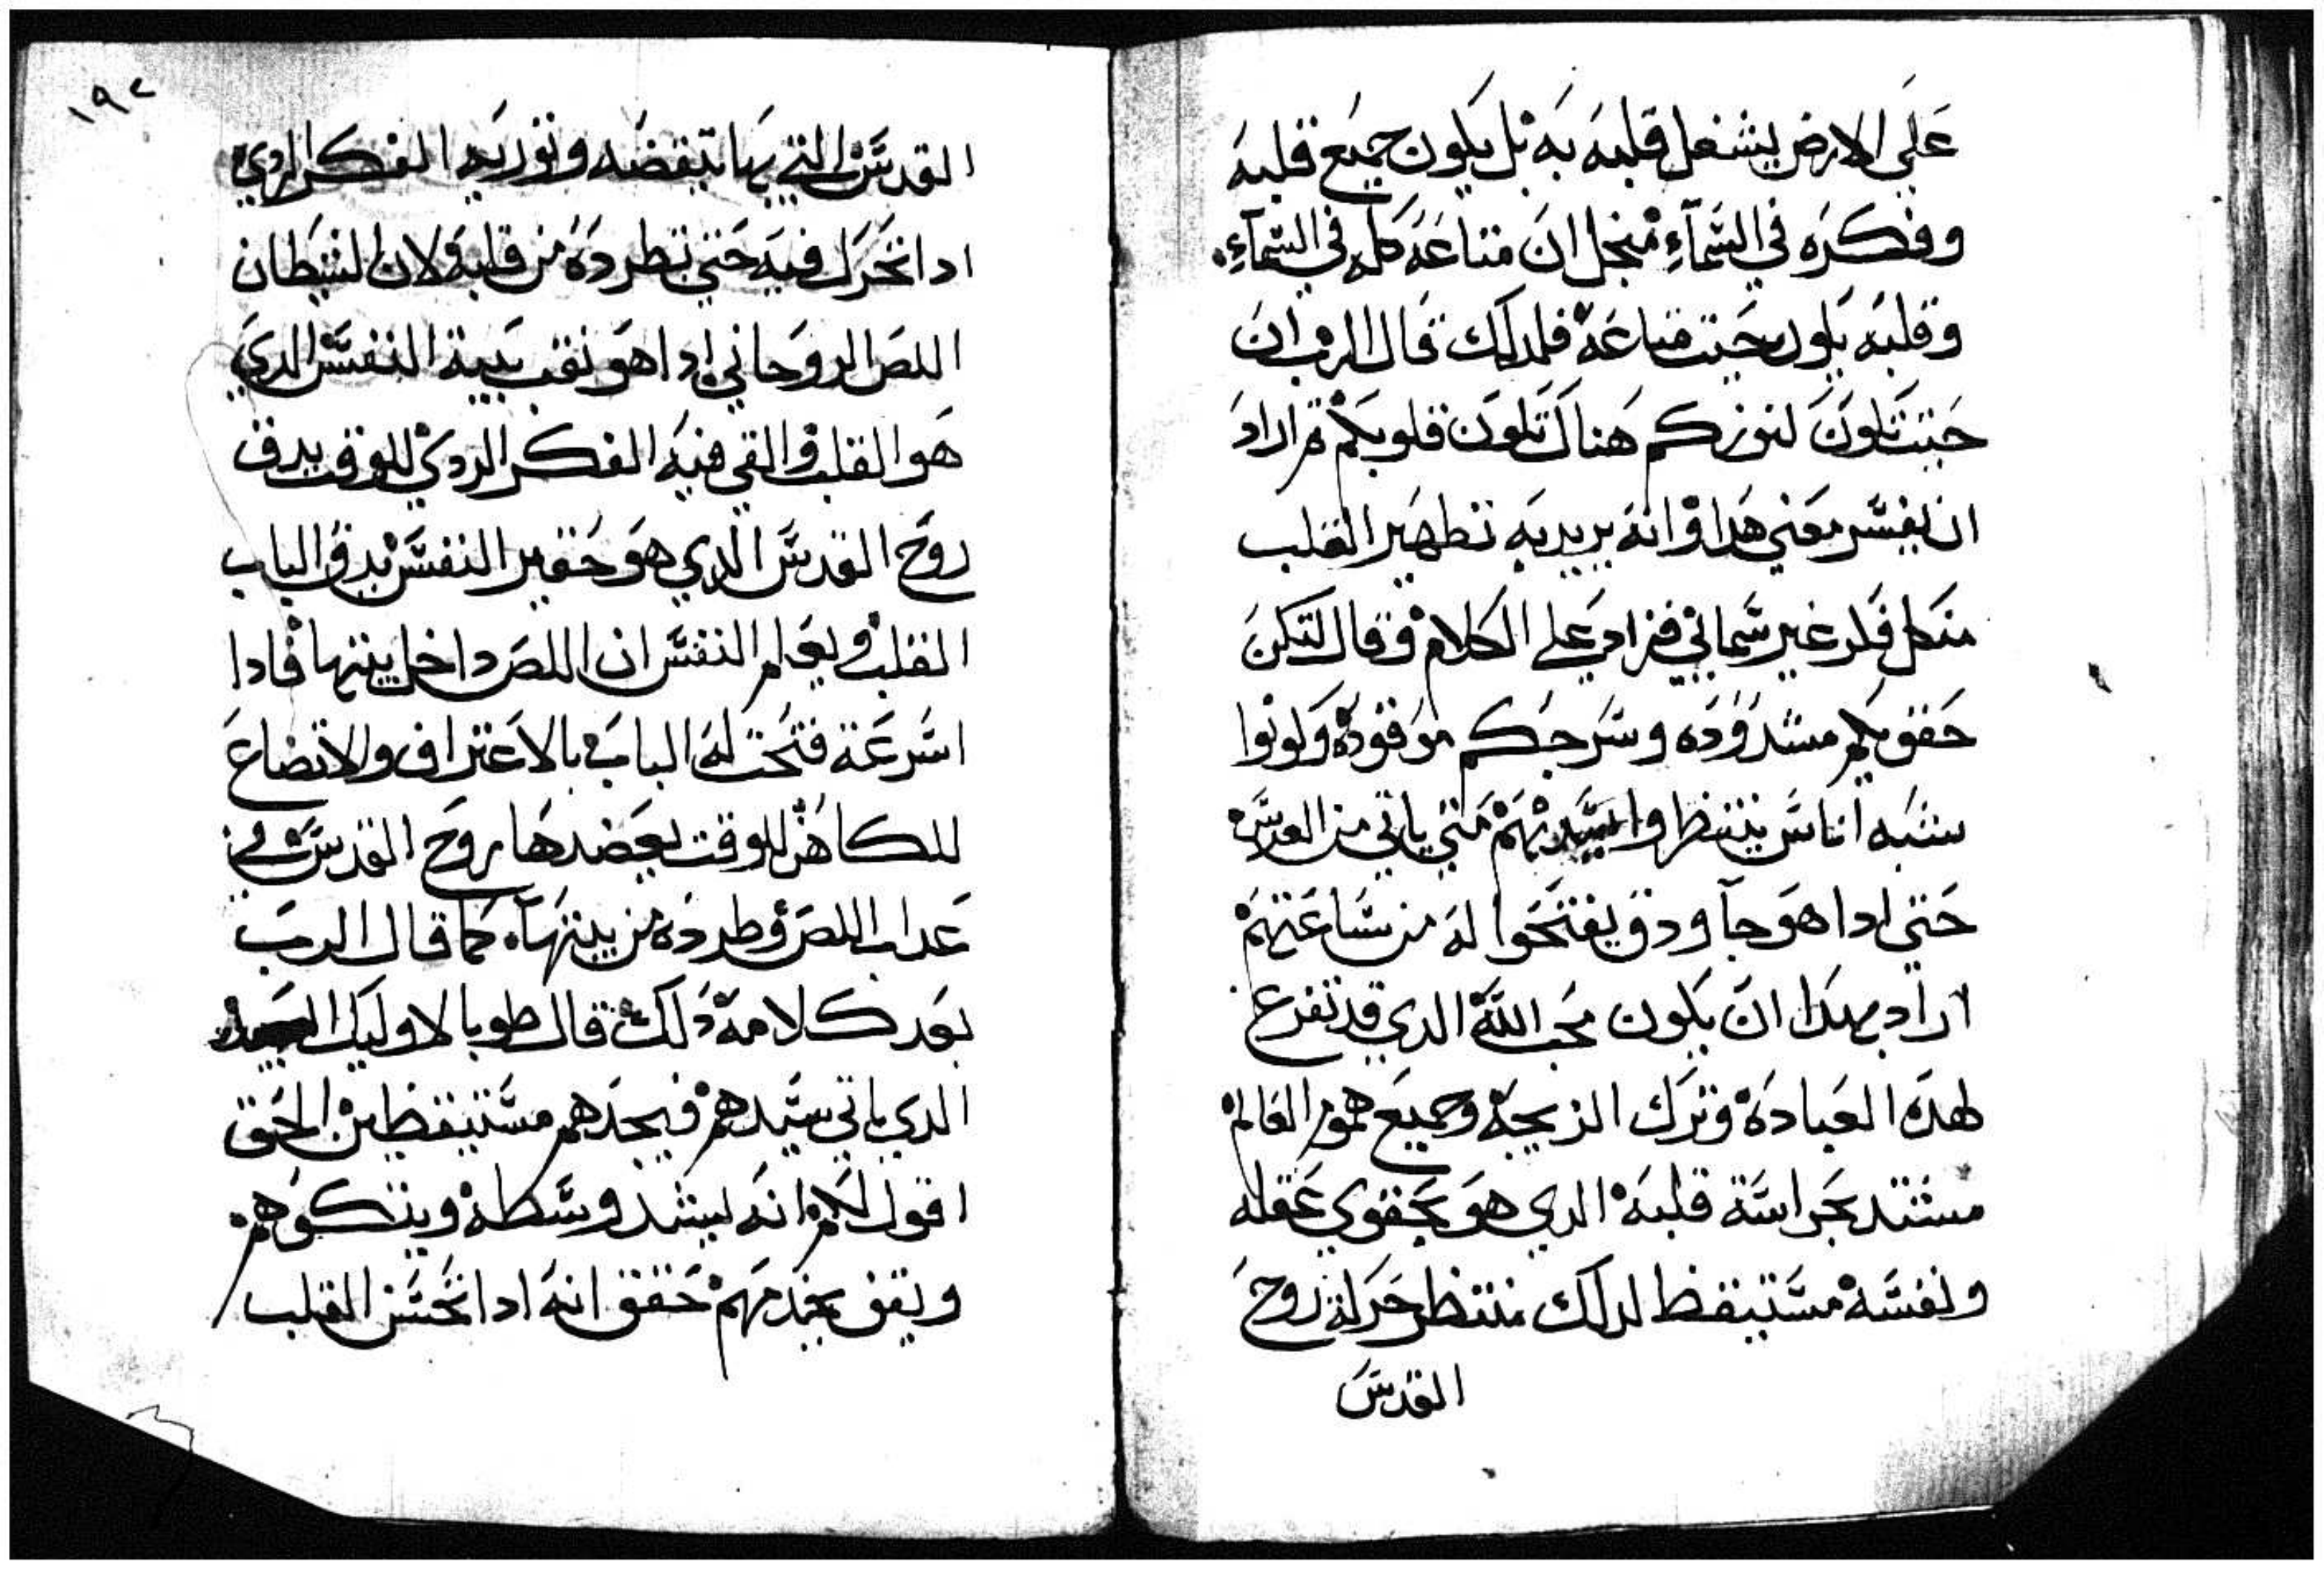 على الارض يشغل قلبه به بل يكون جميع قلبه
وفكره في السماء منجل ان متاعه كله في السماء.
وقلبه يكون حيت متاعه فلدلك قال الرب ان
حيت تكون كنوزكم هناك تكون قلوبكم تم اراد
ان يفسر معني هدا وانه يريد به تطهير القلب
منكل فكر غير سمائي فزاد علي الكلام وقال لتكن
حقويكم مشدوده وسرجكم موقوده وكونوا
شبه اناس ينتظروا سيدهم متي ياتي من العرس
حتي ادا هو جآ ودق يفتحوا له من ساعتهم
اراد بهدا ان يكون محب الله الدي قد تفرع
لهده العباده وترك الزيجه وجميع هموم العالم
مشتد بحراسة قلبه الدي هو بحقوي عقله
ونفسه مستيقظ لدلك منتظر حركة روح
القدس
١٩٢
القدس التي بها تيقضه وتوريه الفكر الردي
ادا تحرك فيه حتي تطرده من قلبه ولان الشيطان
اللص الروحاني ادا هو نقب بيت النفس الدي
هو القلب والقي فيه الفكر الردي للوقت يدق
روح القدس الدي هو خفير النفس يدق الباب
القلب ويعلم النفس ان اللص داخل بيتها فادا
اسرعة فتحت له الباب بالاعتراف والاتضاع
للكاهن للوقت يعضدها روح القدس في
عداب اللص وطرده من بيتها. كما قال الرب
بعد كلامه دلك قال طوبا لاوليك العبيد
الدي ياتي سيدهم فيجدهم مستيقظين الحق
اقول لكم انه ليشد وسطه ويتكوهم
ويقف يخدمهم حقق انه ادا تحسن القلب